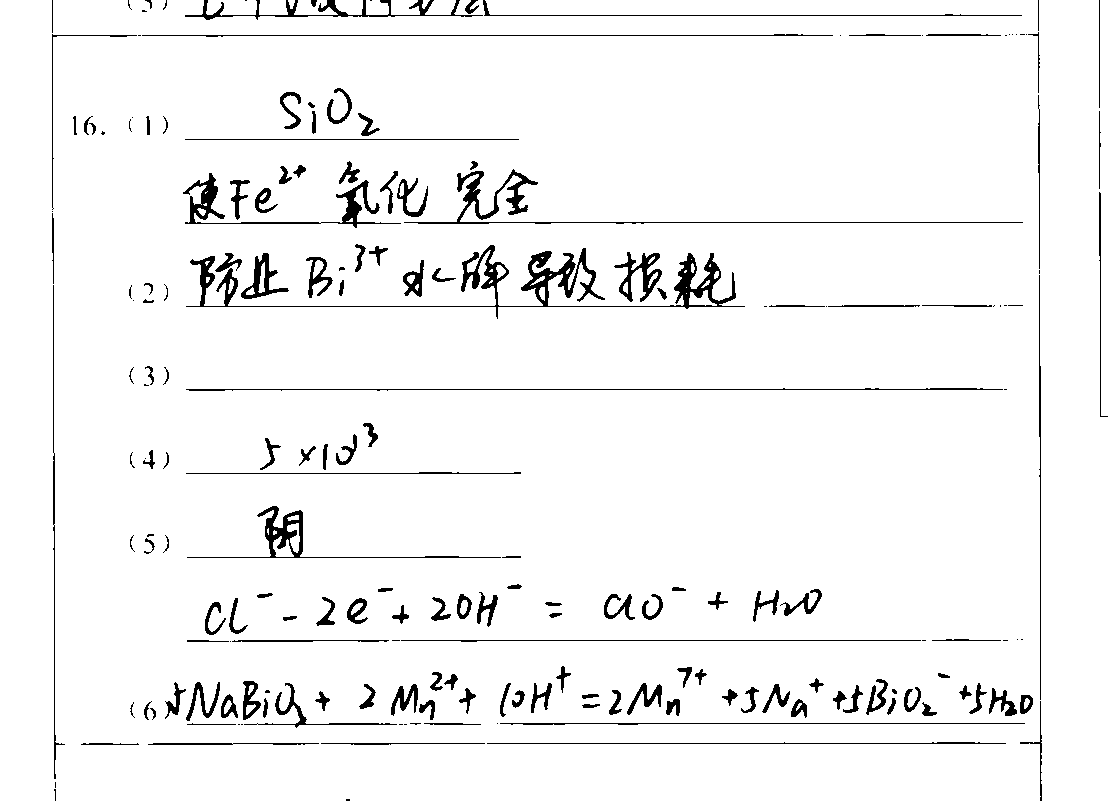 (3)
16. (1) SiO₂
使Fe²⁺ 氧化 完全
(2) 防止 Bi³⁺ 水解 导致 损耗
(3)
(4) 5×10¹³
(5) 阴
Cl⁻ - 2e⁻ + 2OH⁻ = ClO⁻ + H₂O
(6) 5NaBiO₃ + 2Mn²⁺ + 10H⁺ = 2Mn⁷⁺ + 5Na⁺ + 5BiO₂⁻ + 5H₂O